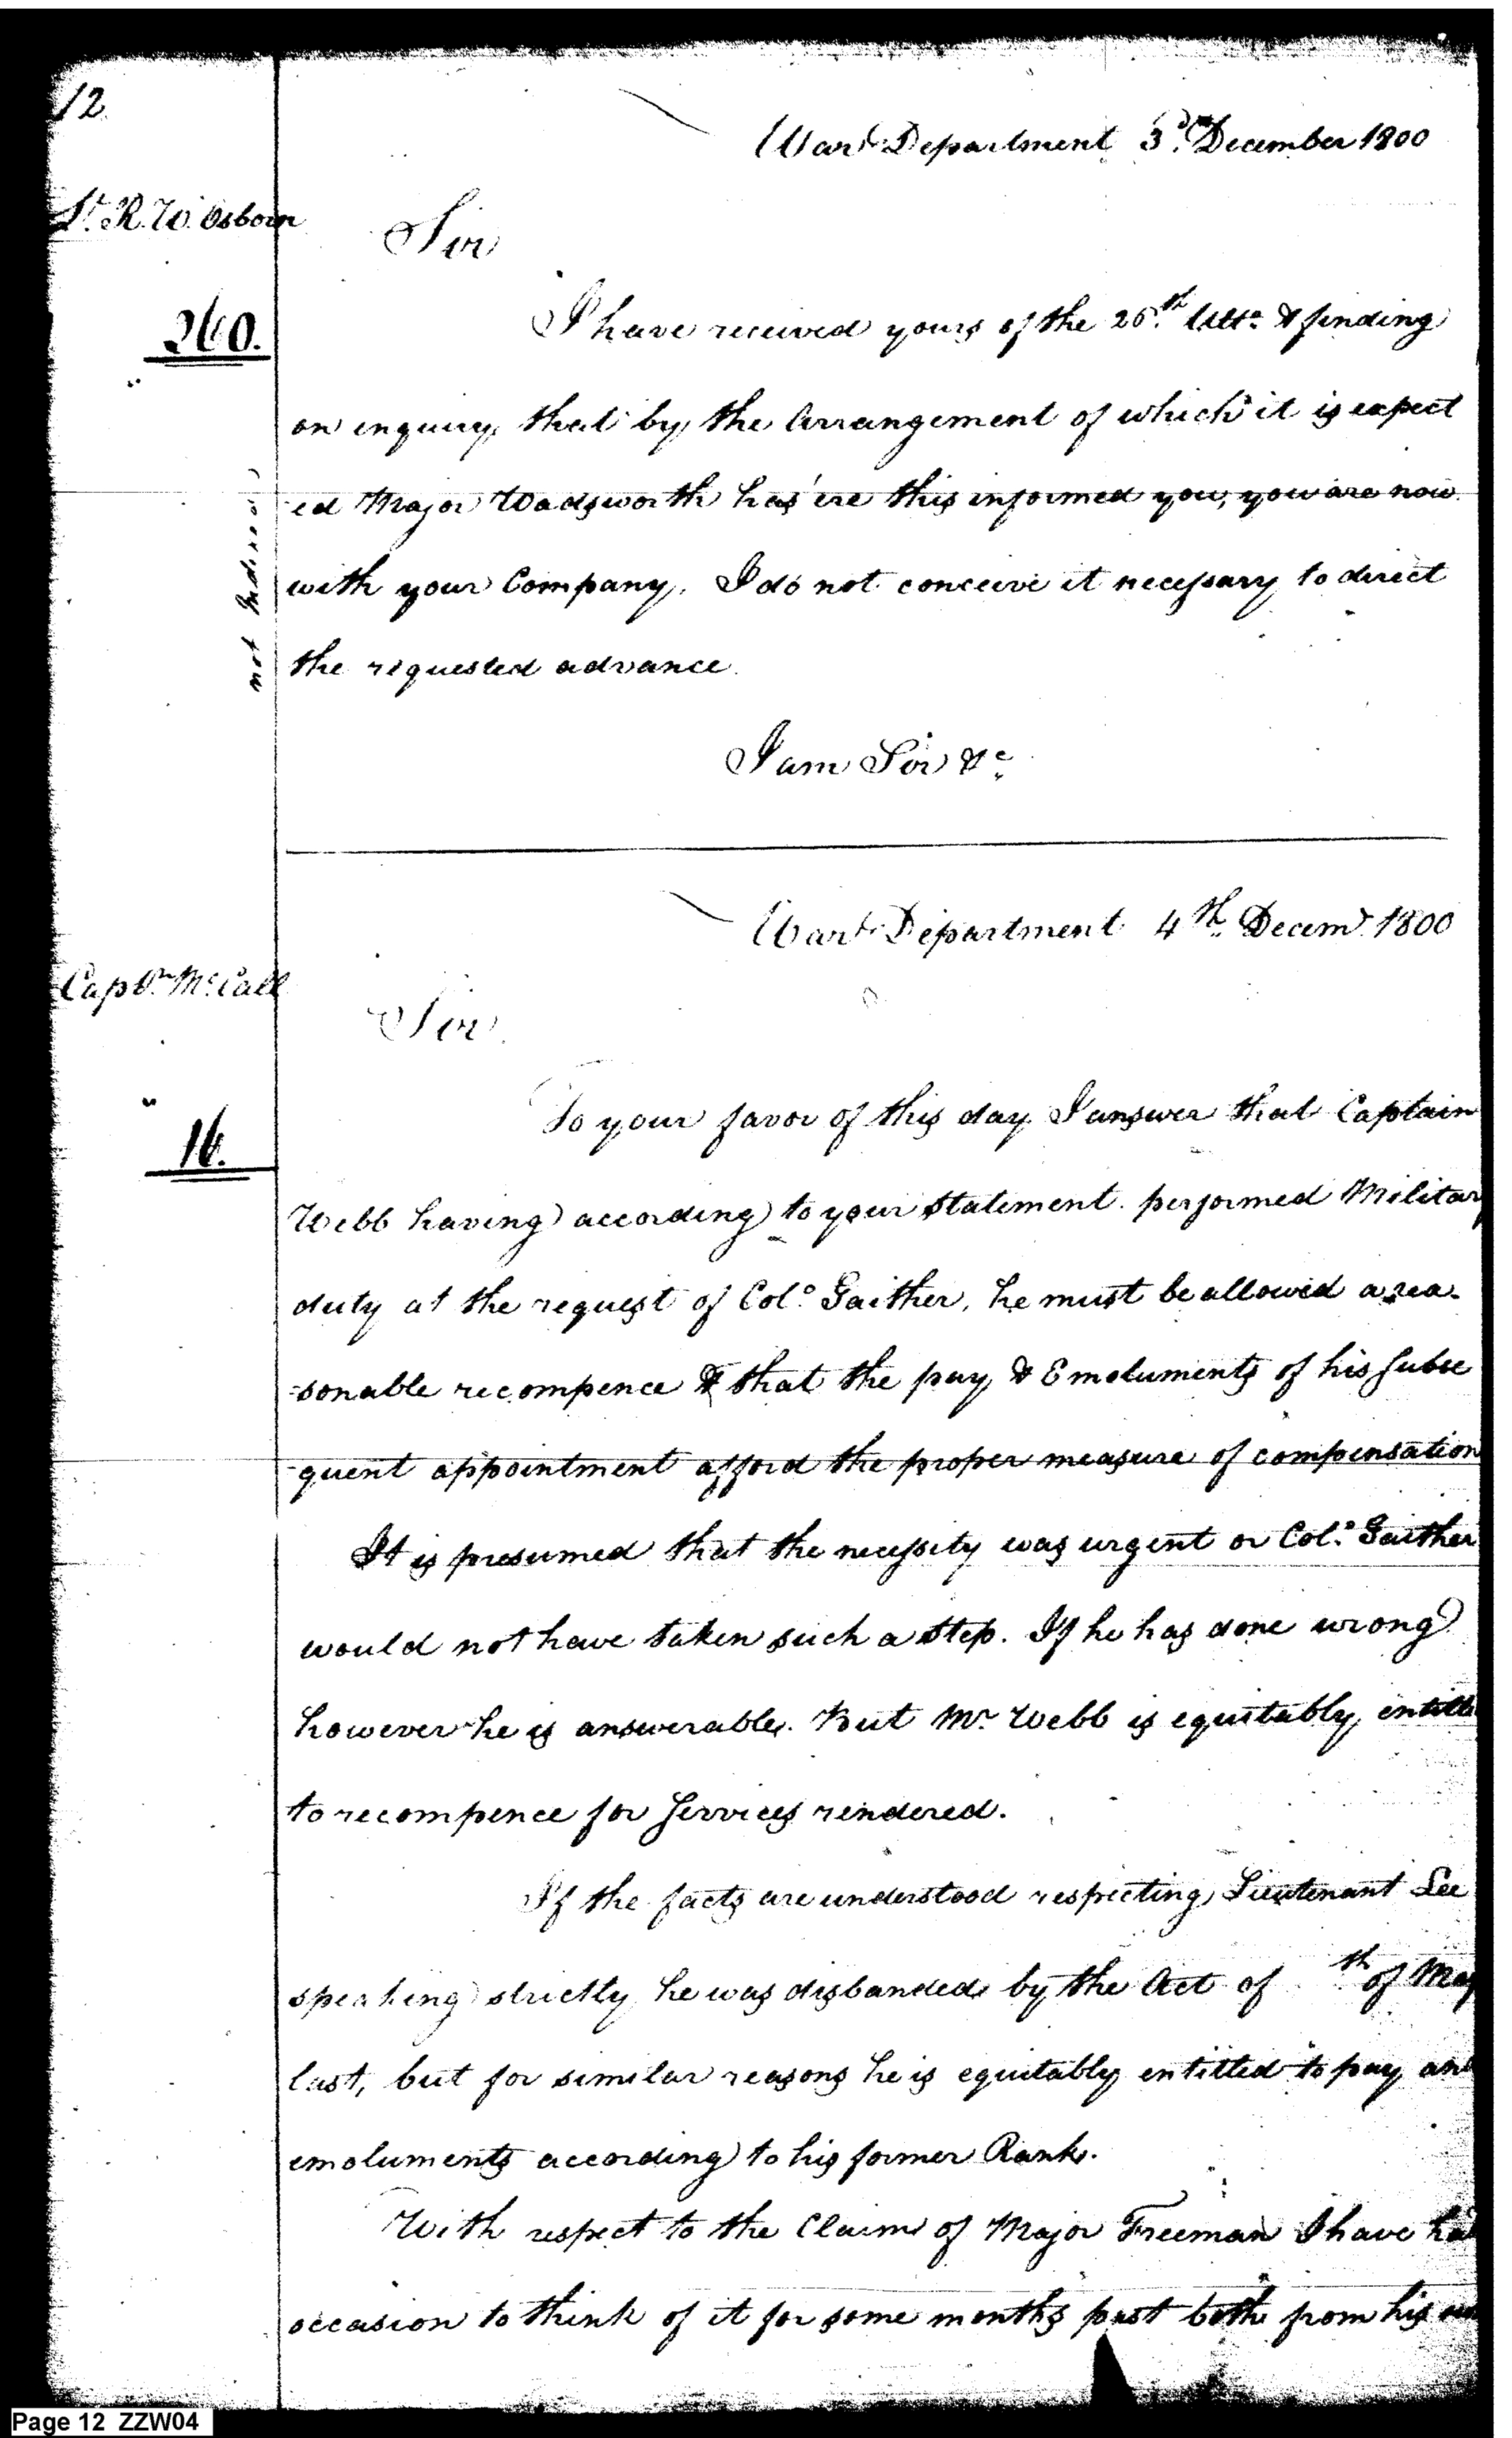 12
War Department 3d. December 1800
Lt. R. W. Osborn
Sir
260.
I have received yours of the 25.th Ulto. & finding
on inquiry, that by the Arrangement of which it is expect
ed Major Wadsworth has 'ere this informed you, you are now
with your Company, I do not conceive it necessary to direct
the requested advance.
not Indexed
I am Sir &c.
War Department 4th. Decemr. 1800
Captn. McCall
Sir.
To your favor of this day I answer that Captain
16.
Webb having according to your Statement performed Military
duty at the request of Colo. Gaither, he must be allowed a rea-
-sonable recompence & that the pay & Emoluments of his subse
quent appointment afford the proper measure of compensation
It is presumed that the necessity was urgent or Colo. Gaither
would not have taken such a step. If he has done wrong
however he is answerable. But Mr. Webb is equitably entitle
to recompence for Services rendered.
If the facts are understood respecting Lieutenant Lee
speaking strictly he was disbanded by the Act of th of May
last, but for similar reasons he is equitably entitled to pay and
emoluments according to his former Rank.
With respect to the Claim of Major Freeman I have had
occasion to think of it for some months past both from his own
Page 12 ZZW04